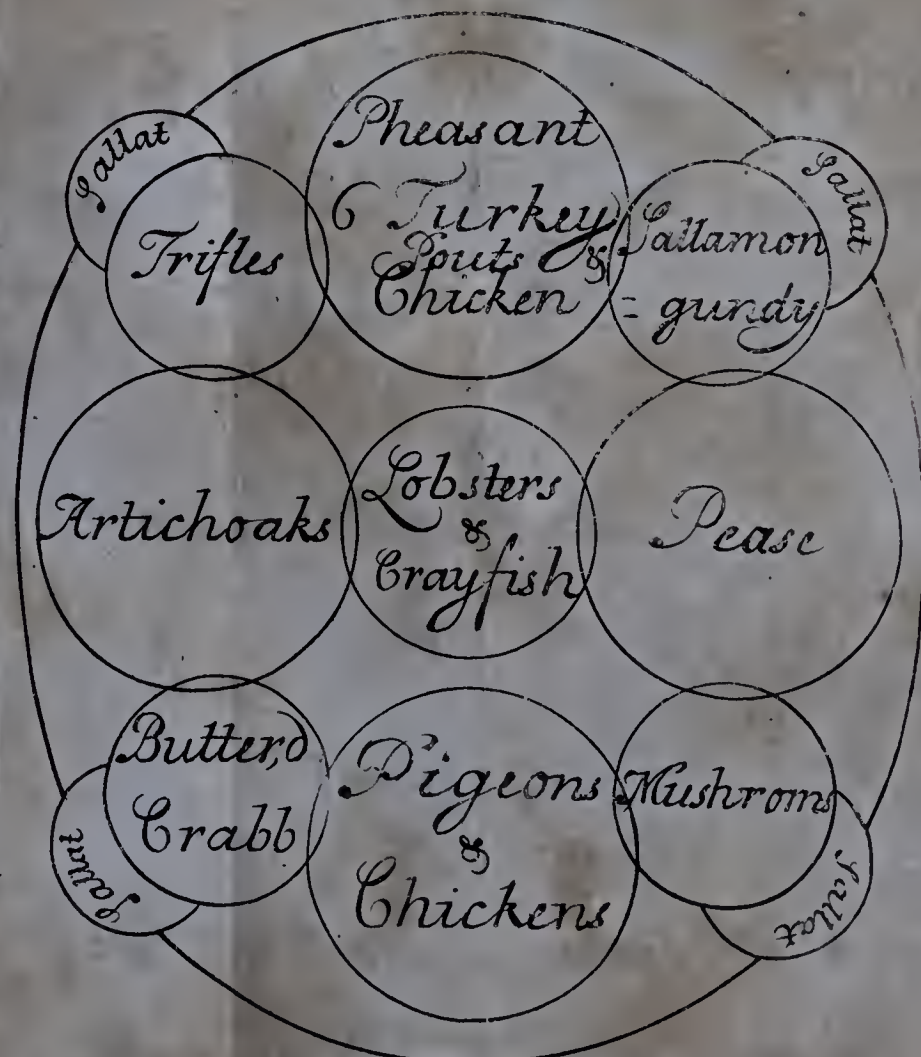 Sallat
Sallat
Pheasant
6 Turkey
Pouts &
Chicken
Trifles
Sallamon
= gundy
Artichoaks
Lobsters
&
Crayfish
Pease
Butter,d
Crabb
Pigeons
&
Chickens
Mushroms
Sallat
Sallat